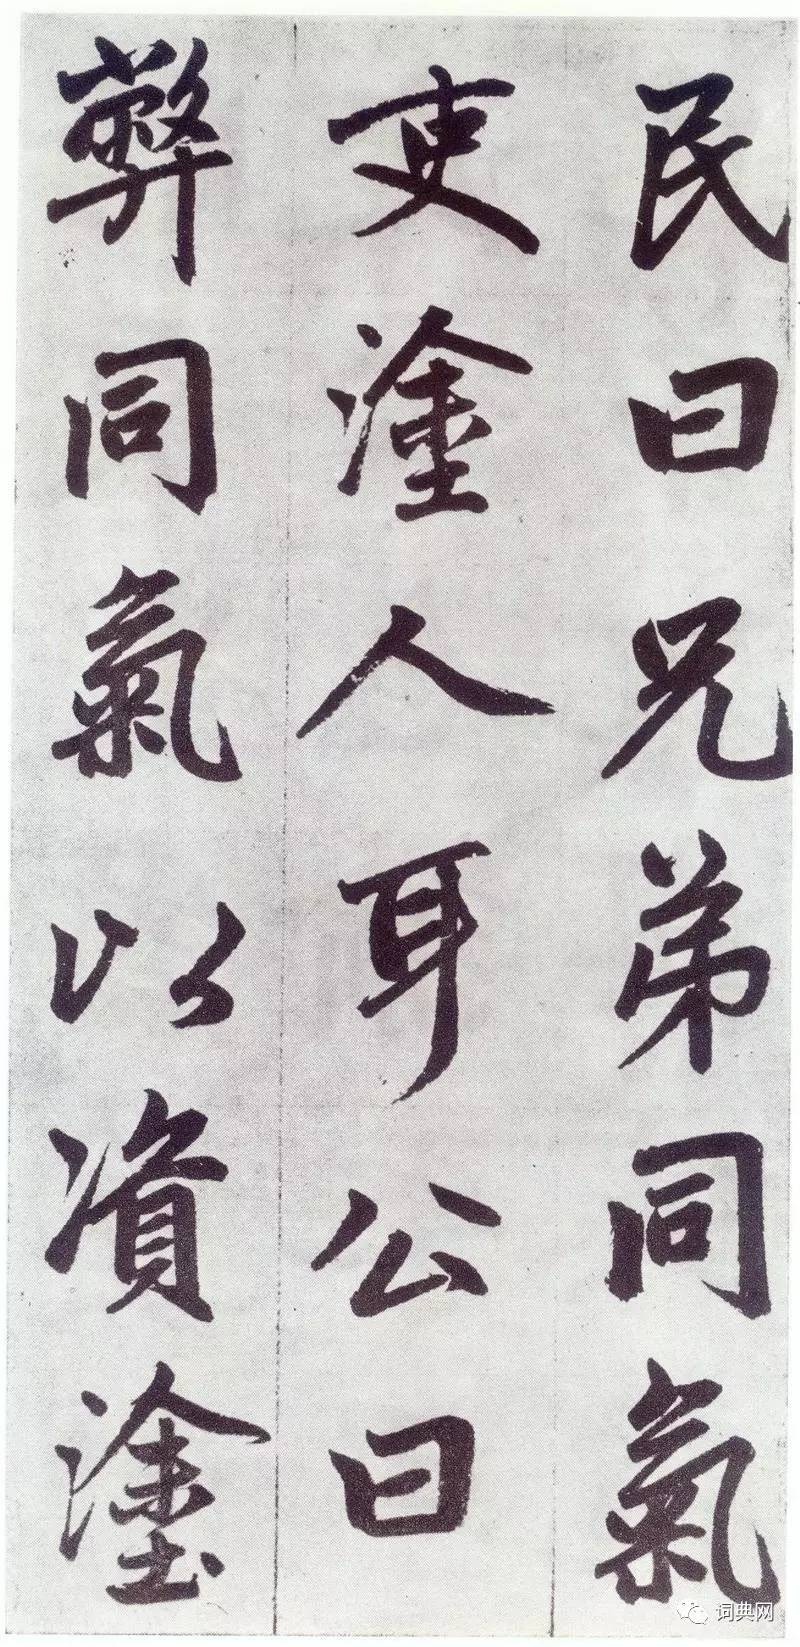 民曰兄弟同氣
吏塗人耳公曰
弊同氣以資塗
词典网